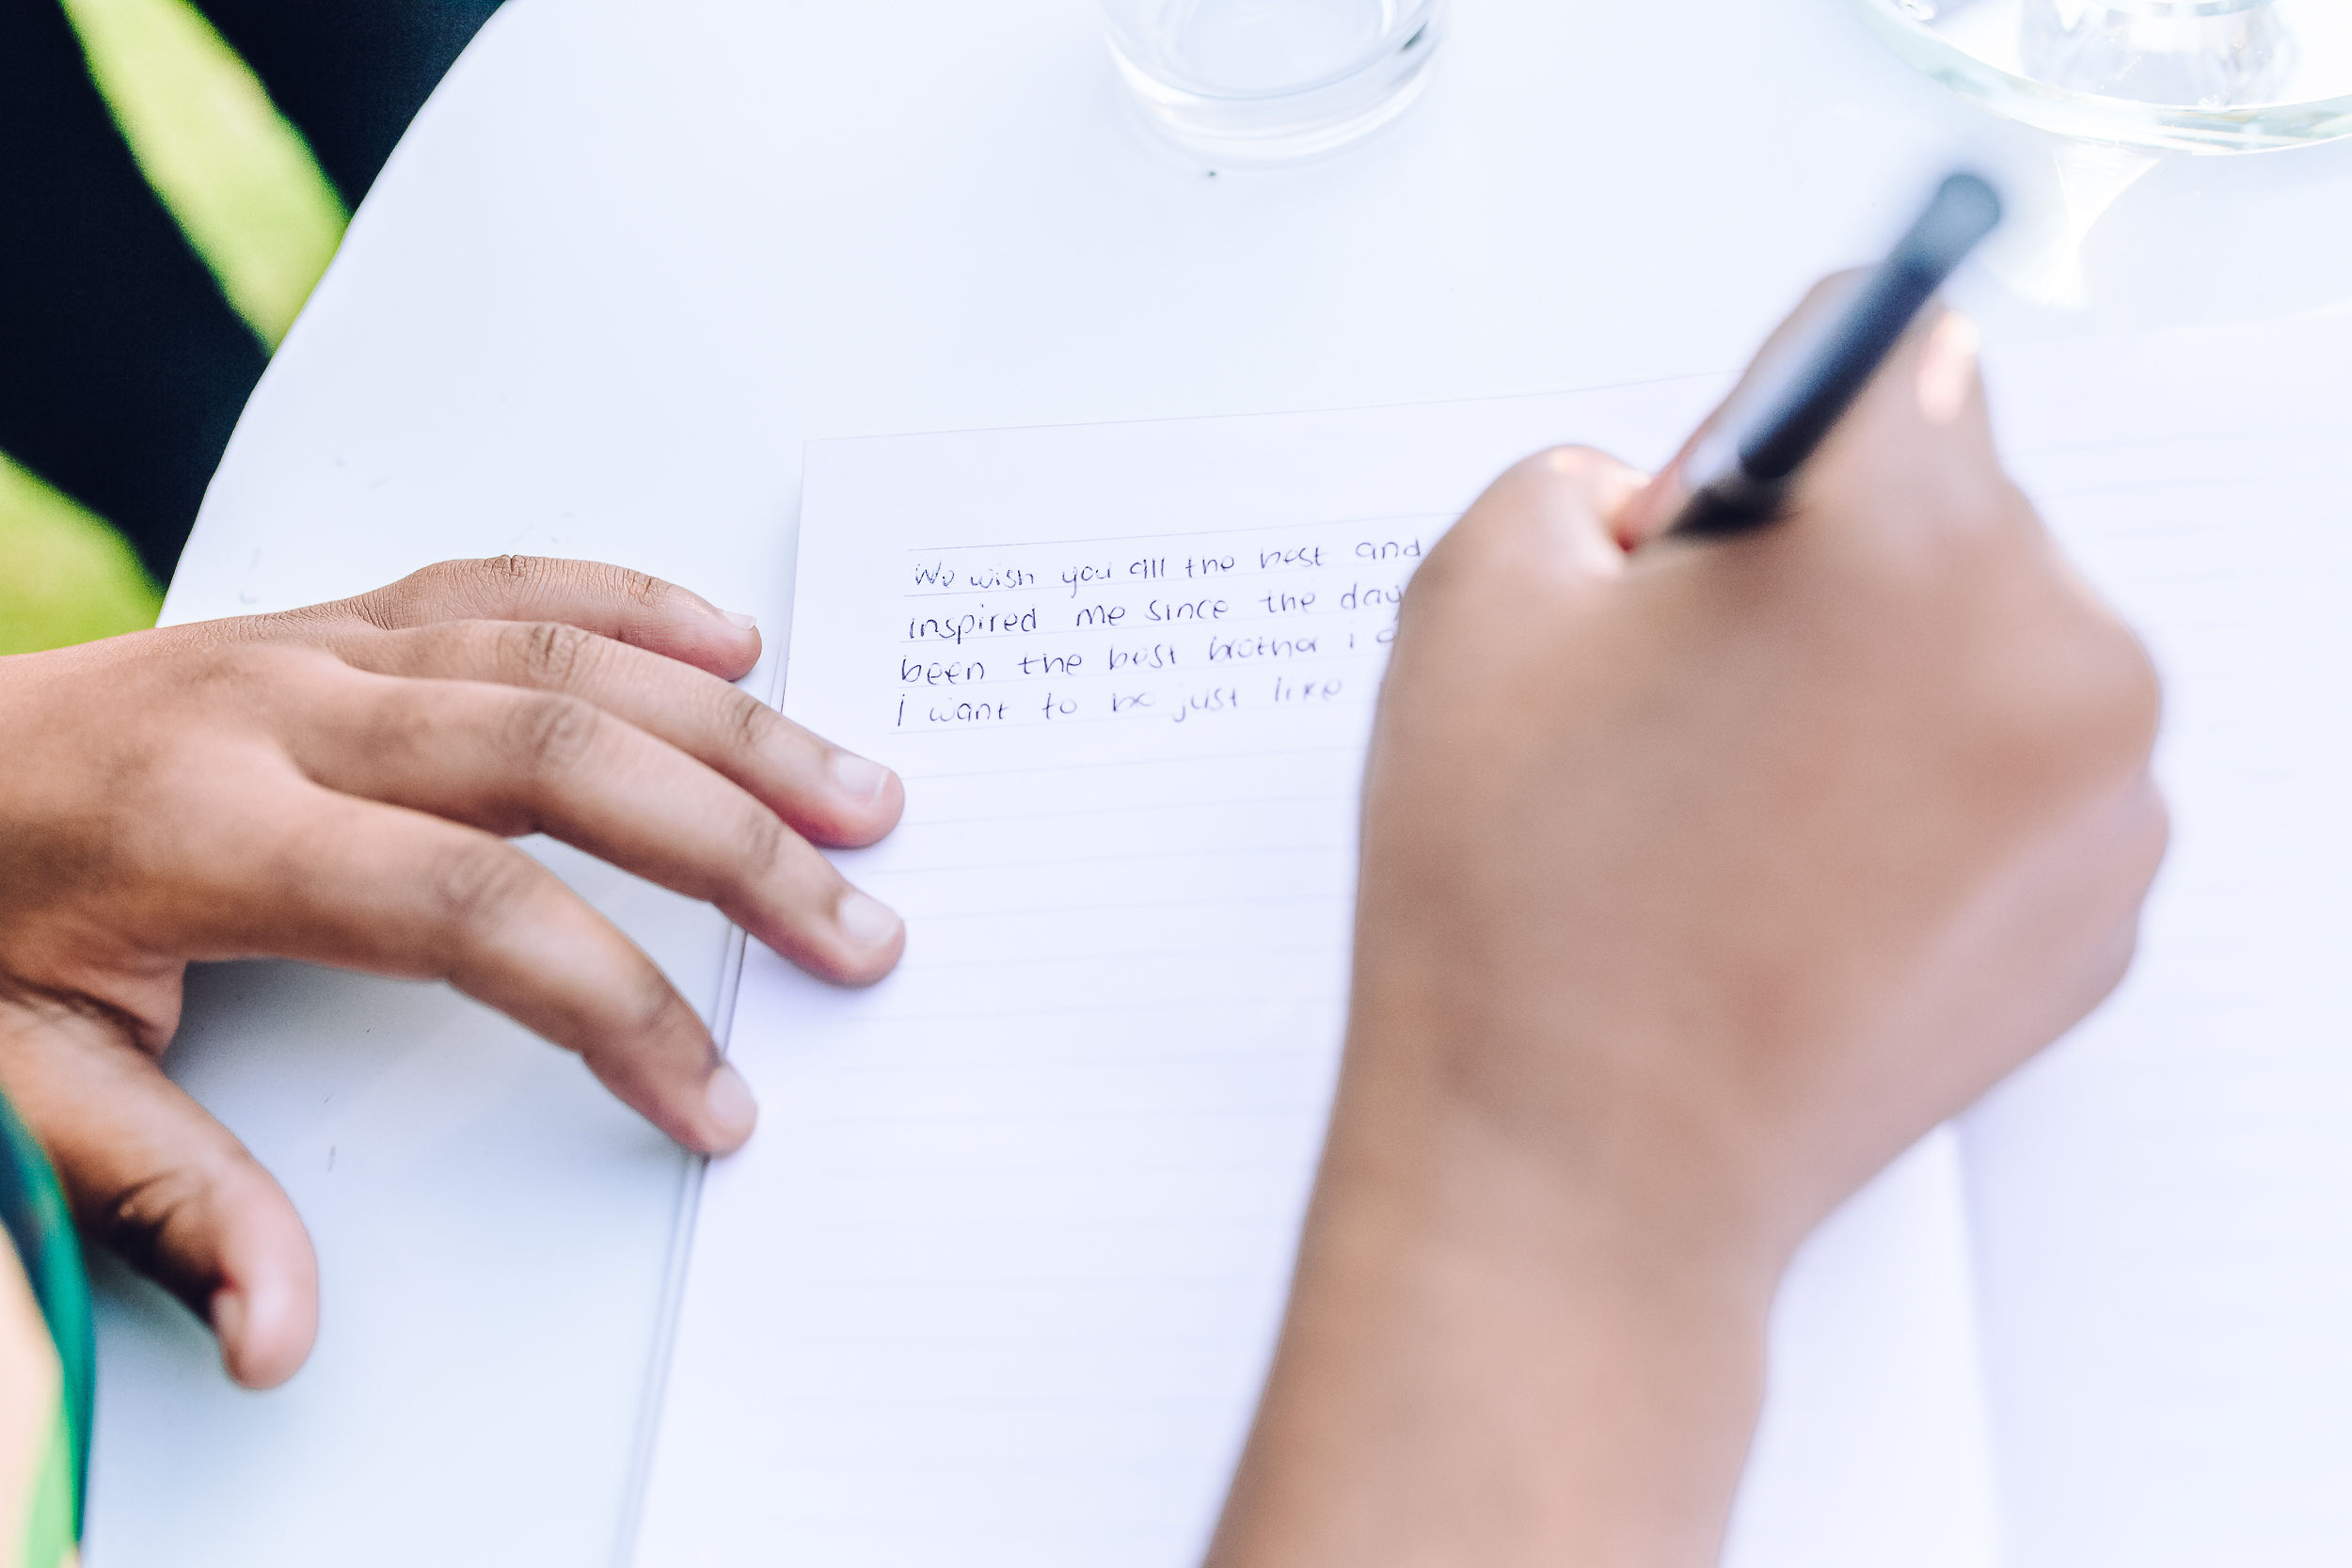 We wish you all the best and
inspired me since the day
been the best brother i
I want to be just like